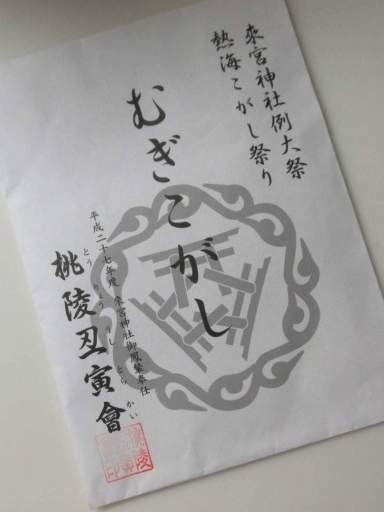 來宮神社例大祭
熱海こがし祭り
むぎこがし
平成二十七年度 來宮神社御鳳輦奉仕
とう りょう うし とら かい
桃陵丑寅會